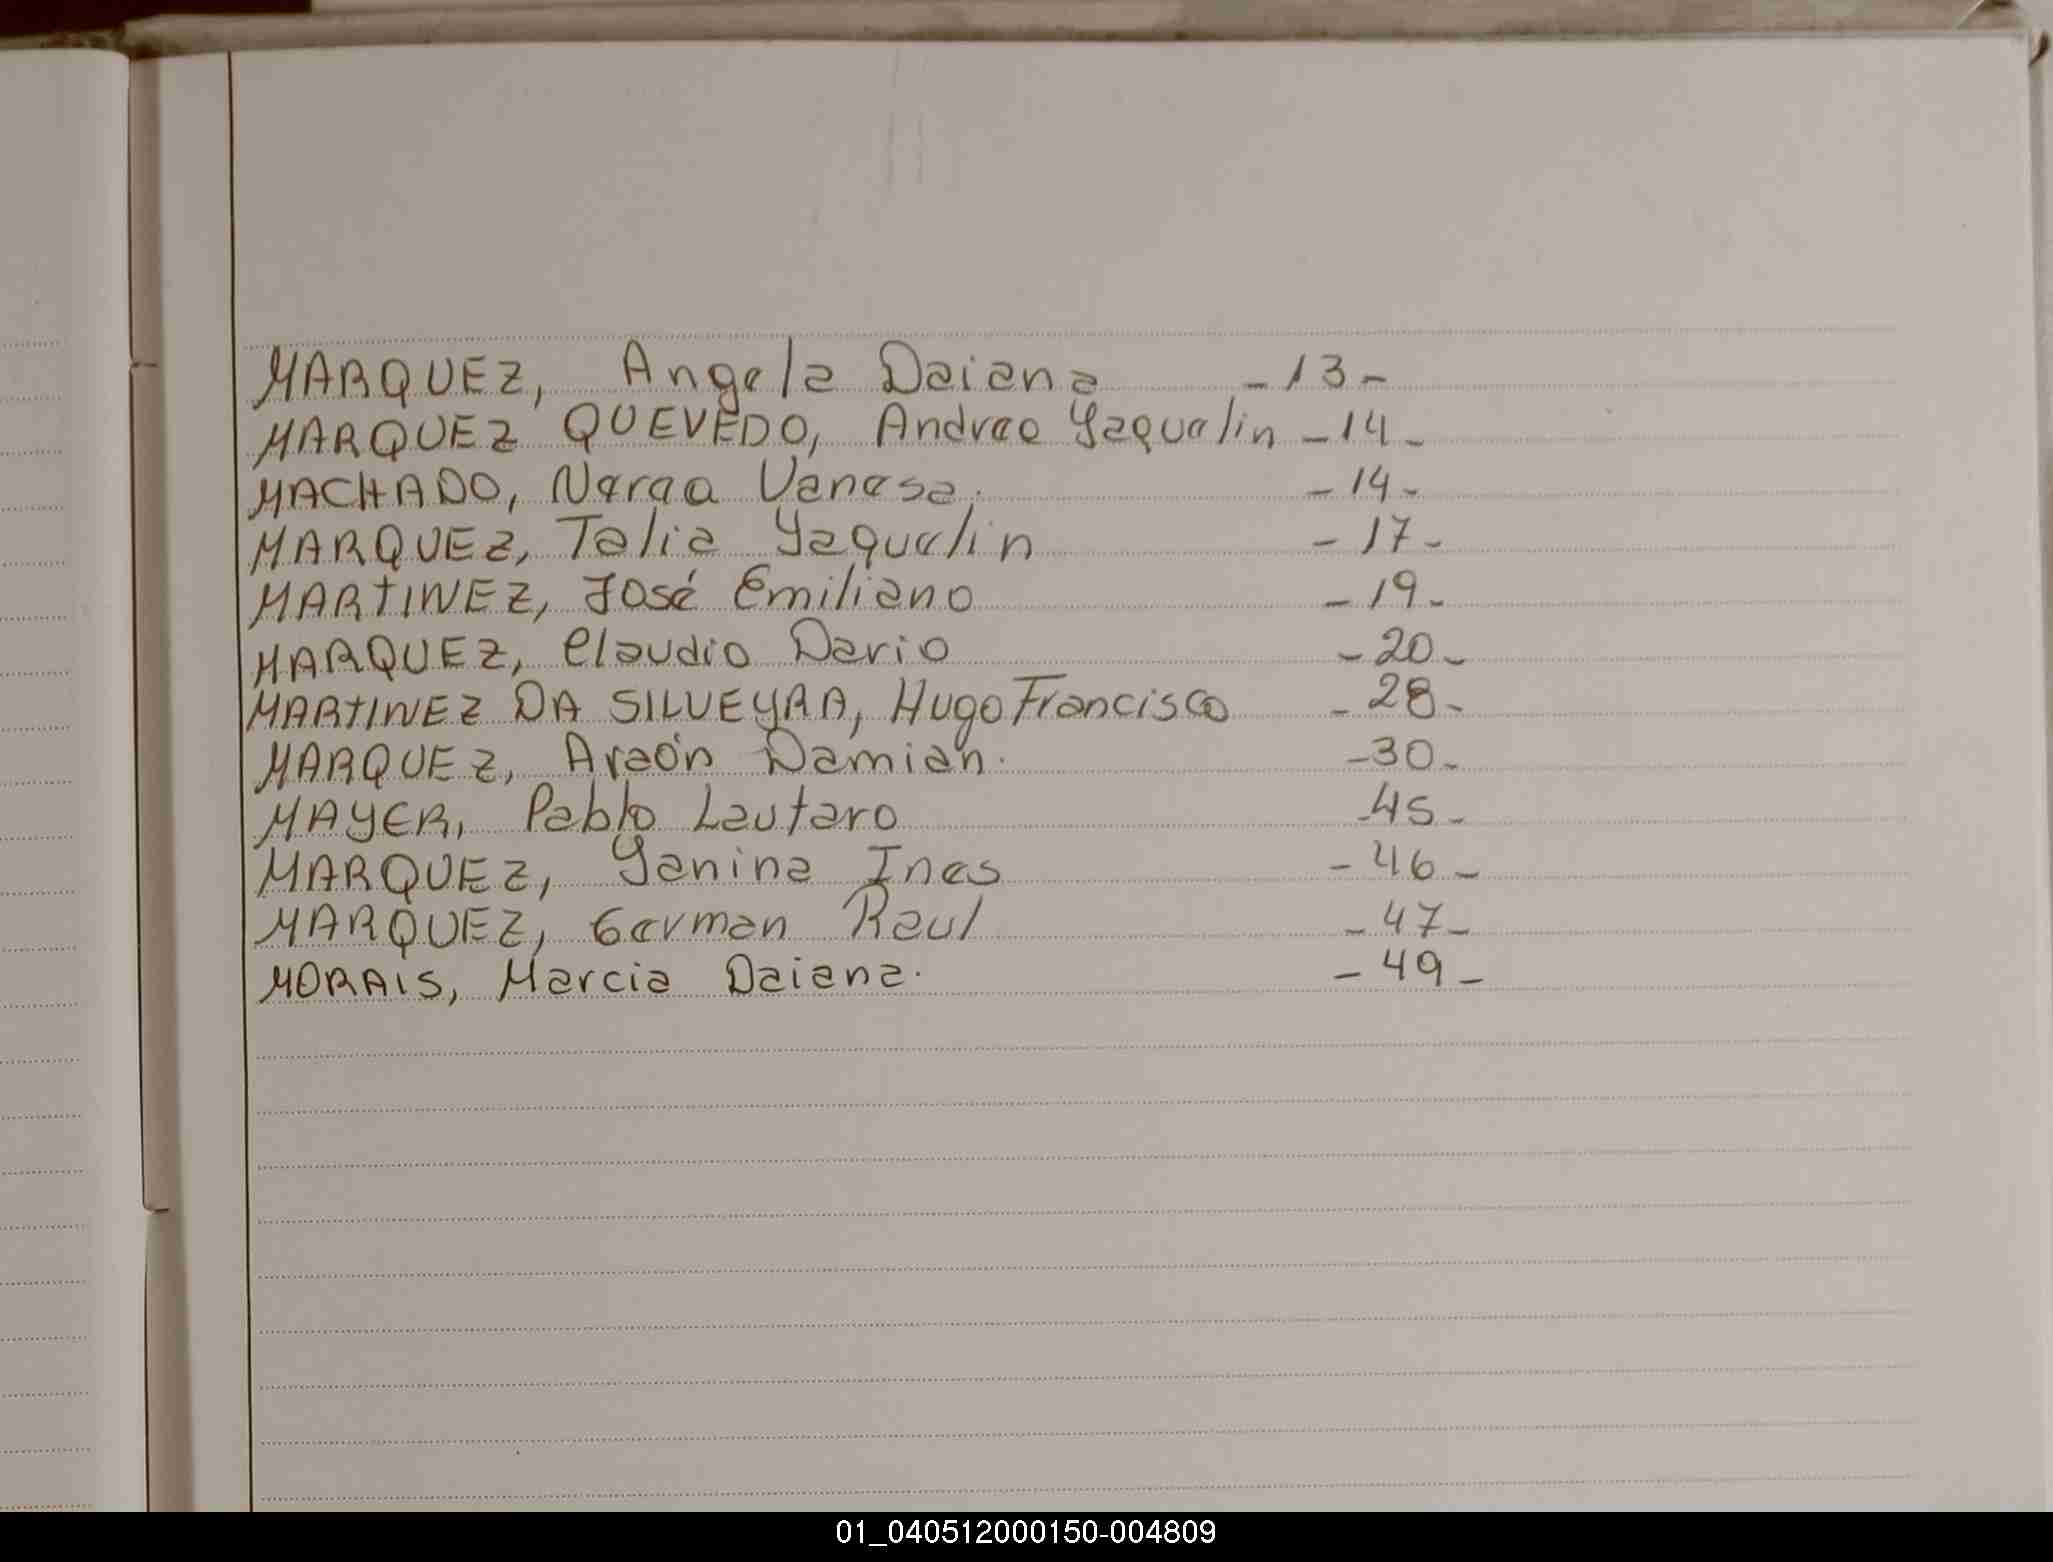 MARQUEZ, Angela Daiana -13-
MARQUEZ QUEVEDO, Andrea Yaquelin -14-
MACHADO, Vanesa. -14-
MARQUEZ, Talia Yaquelin -17-
MARTINEZ, José Emiliano -19-
MARQUEZ, Claudio Dario -20-
MARTINEZ DA SILVEYRA, Hugo Francisco -28-
MARQUEZ, Araón Damian. -30-
MAYER, Pablo Lautaro -45-
MARQUEZ, Yanina Ines -46-
MARQUEZ, German Raul -47-
MORAIS, Marcia Daiana. -49-
01_040512000150-004809